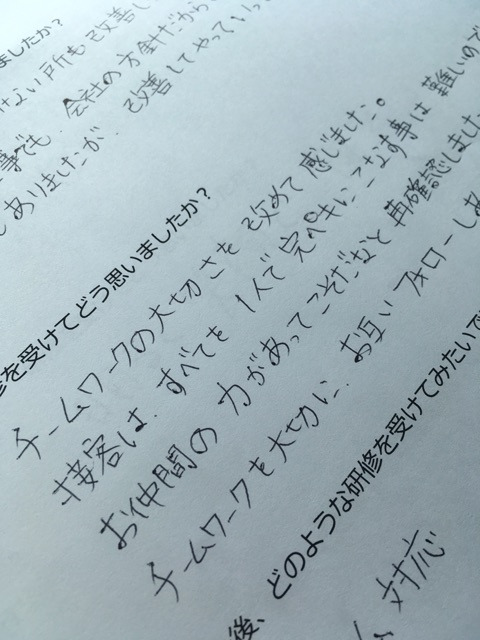 ましたか?
ない所も改善し
事でも、会社の方針だから
ありましたが、改善してやっていっ
修を受けてどう思いましたか?
チームワークの大切さを改めて感じました。
接客は、すべてを1人で完ペキにこなす事は難しいので
お仲間の力があってこそだなと再確認しました
チームワークを大切に、お互いフォローしあ
後、どのような研修を受けてみたいで
対応